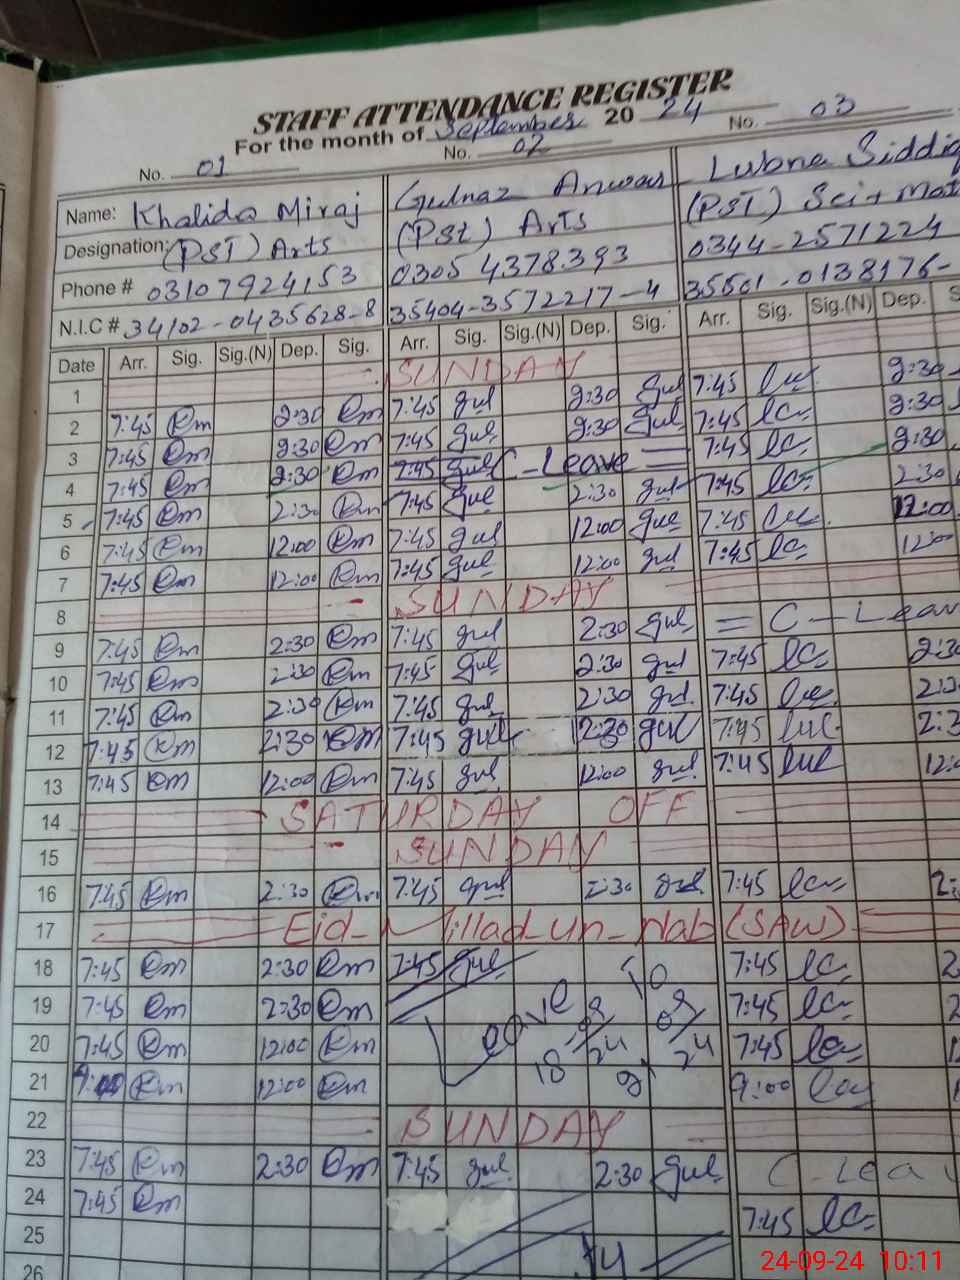 STAFF ATTENDANCE REGISTER
For the month of September 2024
No. 01 No. 02 No. 03
Name: Khalida Miraj Gulnaz Anwar Lubna Siddiq
Designation: (PST) Arts (PSt) Arts (PST) Sci+Mat
Phone # 03107924153 0305 4378393 0344-2571224
N.I.C # 34102-0435628-8 35404-3572217-4 35501-0138176-
Date Arr. Sig. Sig.(N) Dep. Sig. Arr. Sig. Sig.(N) Dep. Sig. Arr. Sig. Sig.(N) Dep. S
1 SUNDAY
2 7:45 Km 2:30 Km 7:45 gul 2:30 Gul 7:45 2:30
3 7:45 Km 2:30 Km 7:45 gul 2:30 Gul 7:45 2:30
4 7:45 Km 2:30 Km 7:45 gul C-Leave 7:45 2:30
5 7:45 Km 2:30 Km 7:45 gul 2:30 gul 7:45 2:30
6 7:45 Km 12:00 Km 7:45 gul 12:00 gul 7:45 12:00
7 7:45 Km 12:00 Km 7:45 gul 12:00 gul 7:45 12:00
8 SUNDAY
9 7:45 Km 2:30 Km 7:45 gul 2:30 gul = C-Leav
10 7:45 Km 2:30 Km 7:45 gul 2:30 gul 7:45 2:30
11 7:45 Km 2:30 Km 7:45 gul 2:30 gul 7:45 2:3
12 7:45 Km 2:30 Km 7:45 gul 2:30 gul 7:45 2:3
13 7:45 Km 12:00 Km 7:45 gul 12:00 gul 7:45 12:0
14 SATURDAY OFF
15 SUNDAY
16 7:45 Km 2:30 Km 7:45 gul 2:30 gul 7:45 2:
17 Eid-Millad-un-Nab(SAW)
18 7:45 Km 2:30 Km 7:45 gul 7:45 2
19 7:45 Km 2:30 Km Leave 18/09/24 to 7:45 2
20 7:45 Km 12:00 Km 09/24 7:45 1
21 9:00 Km 12:00 Km 9:00
22 SUNDAY
23 7:45 Km 2:30 Km 7:45 gul 2:30 gul C-Lea
24 7:45 Km 7:45
25
26
24-09-24 10:11